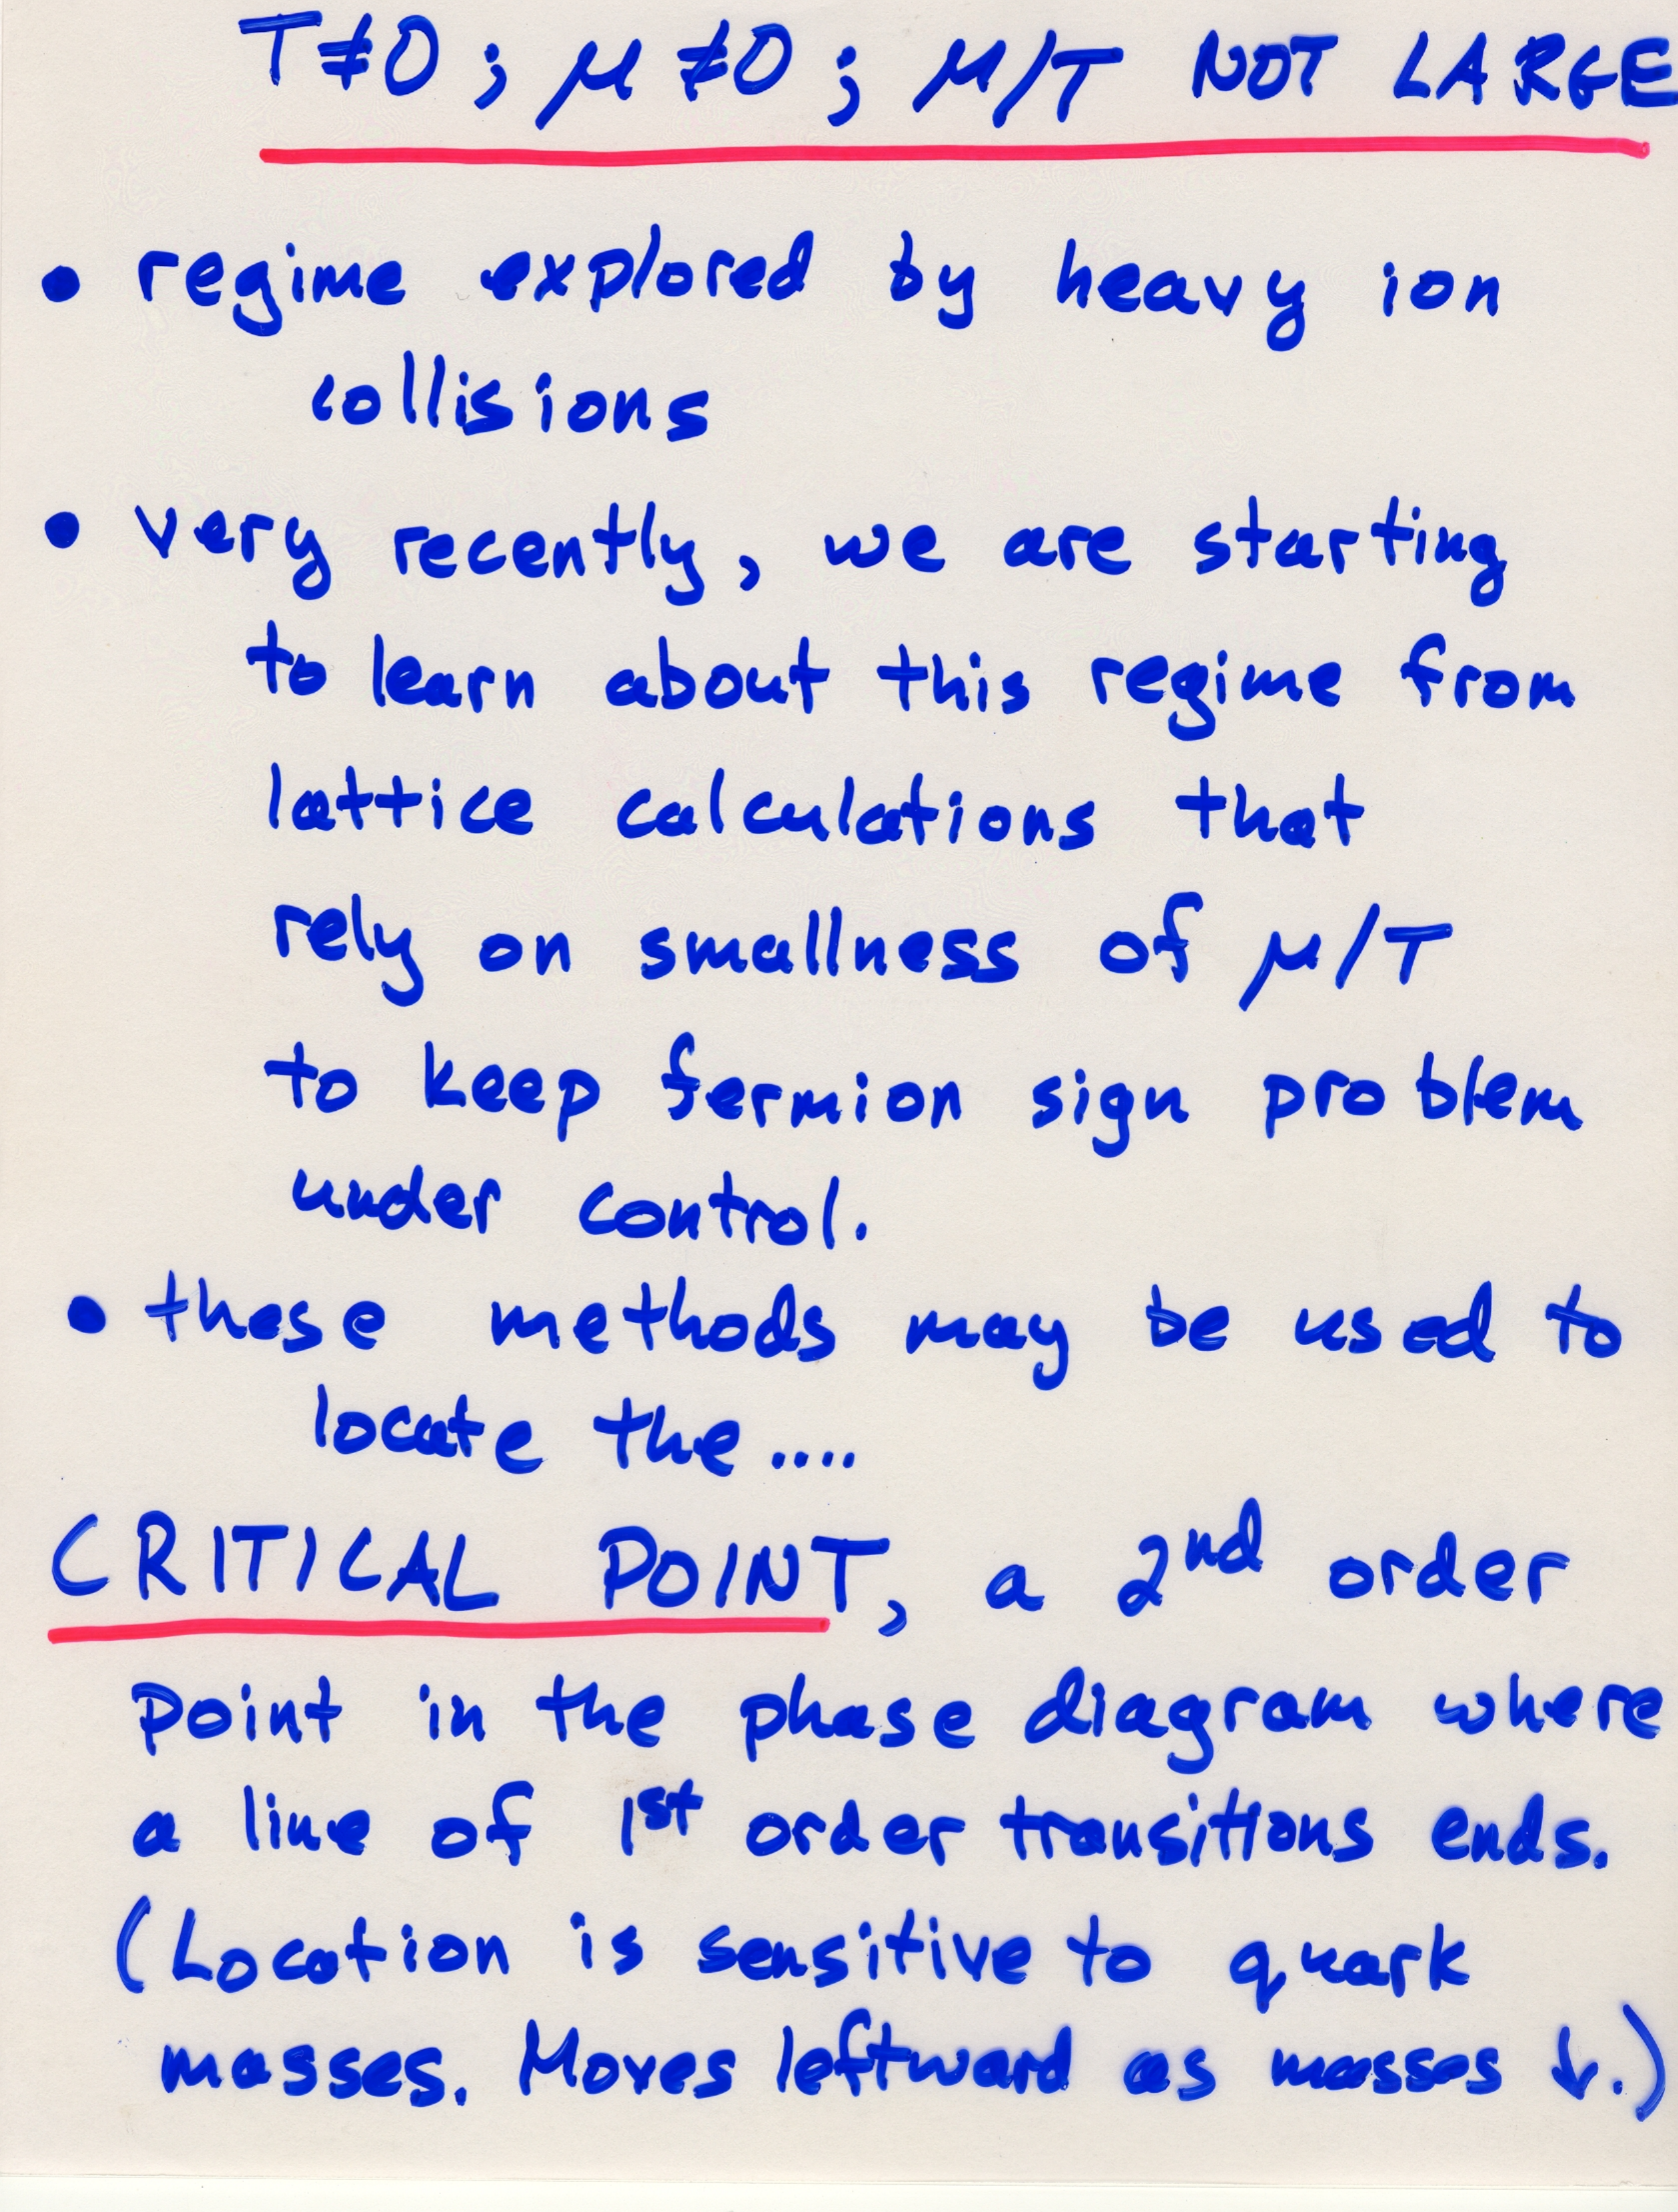 T≠0 ; μ≠0 ; μ/T NOT LARGE
• regime explored by heavy ion
collisions
• very recently, we are starting
to learn about this regime from
lattice calculations that
rely on smallness of μ/T
to keep fermion sign problem
under control.
• these methods may be used to
locate the ....
CRITICAL POINT, a 2nd order
point in the phase diagram where
a line of 1st order transitions ends.
(Location is sensitive to quark
masses. Moves leftward as masses ↓.)